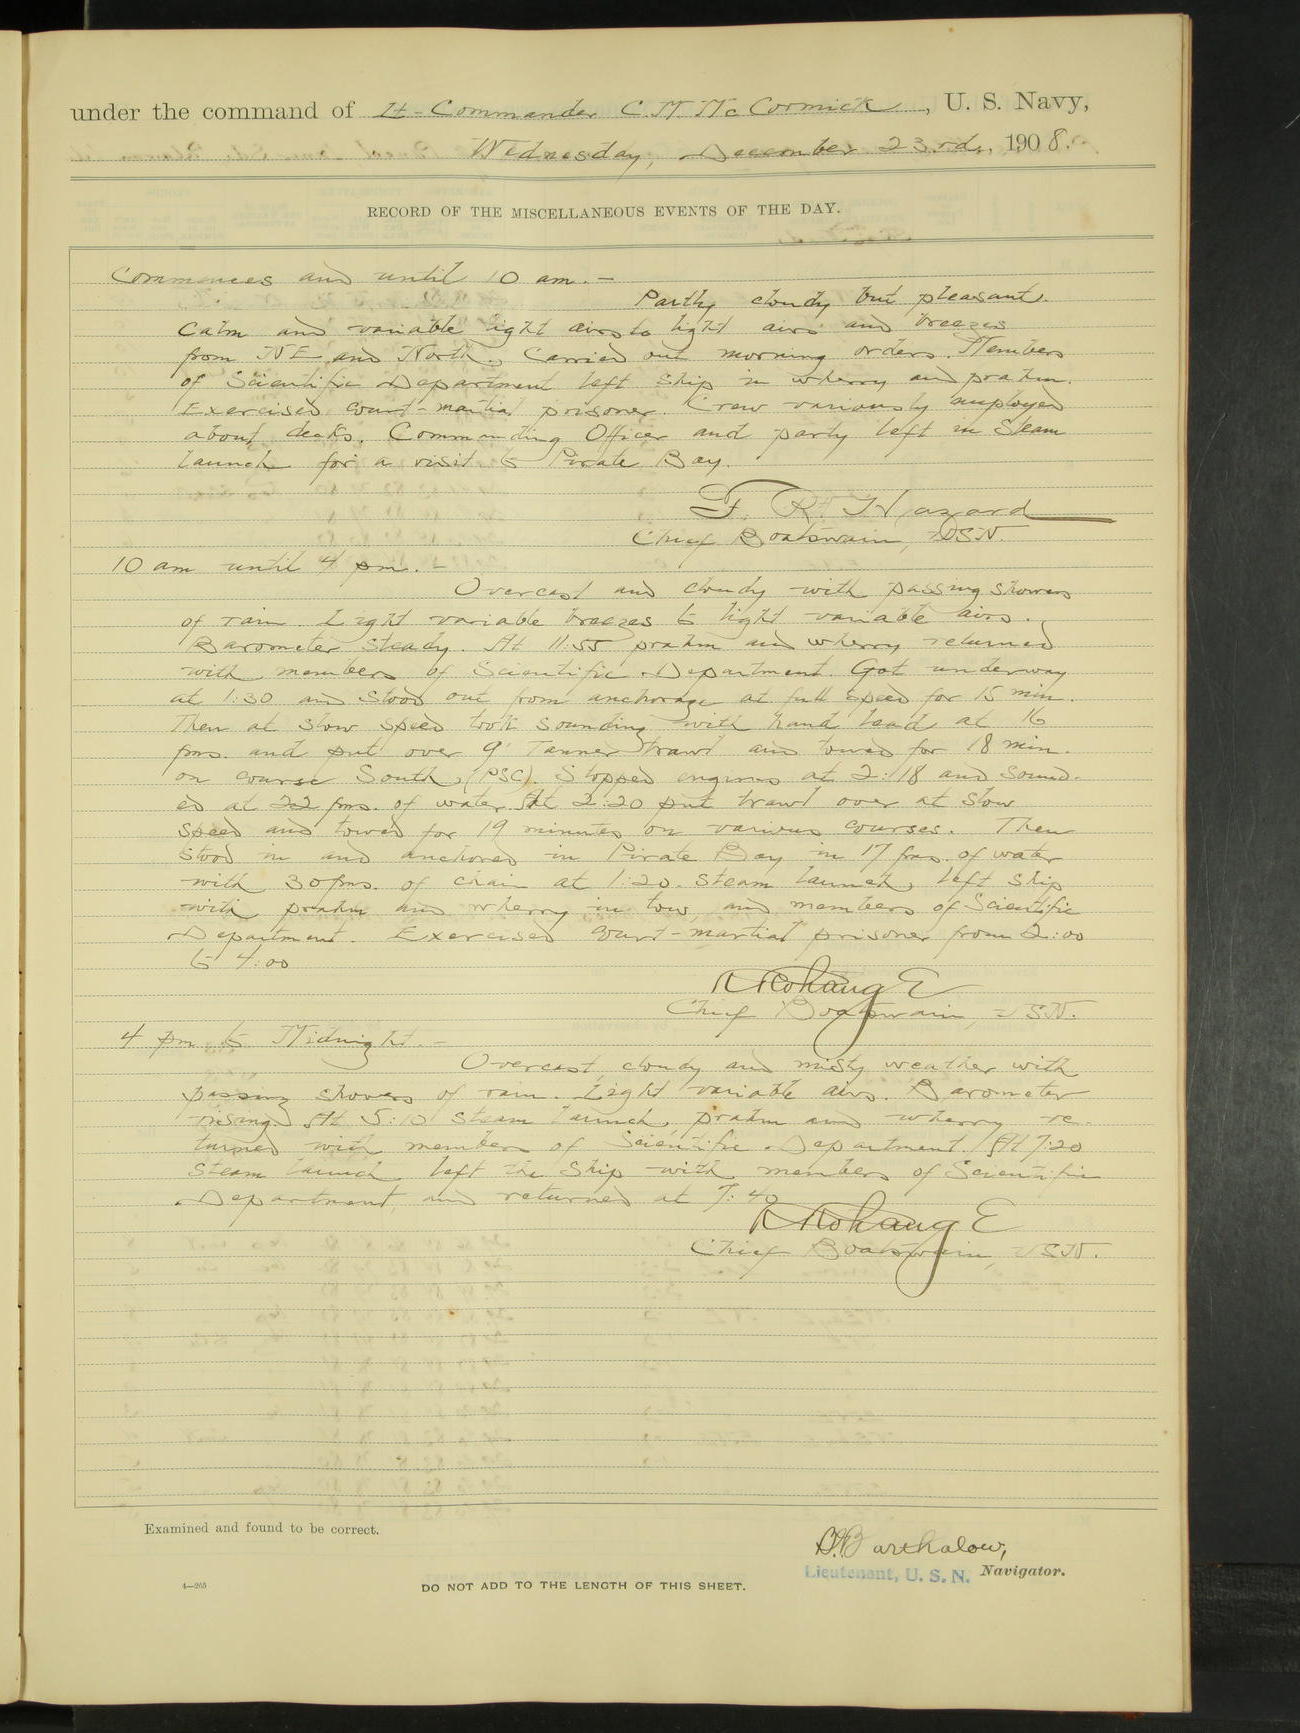 under the command of Lt-Commander C. M. McCormick, U. S. Navy,
Wednesday, December 23rd, 1908.
RECORD OF THE MISCELLANEOUS EVENTS OF THE DAY.
Commences and until 10 am.-
Partly cloudy but pleasant.
Calm and variable light airs to light airs and breezes
from NE and North. Carried out morning orders. Members
of Scientific Department left ship in wherry and prahm.
Exercised court-martial prisoner. Crew variously employed
about decks. Commanding Officer and party left in Steam
launch for a visit to Pirate Bay.
F. R. Hazard
Chief Boatswain, USN.
10 am until 4 pm.-
Overcast and cloudy with passing showers
of rain. Light variable breezes to light variable airs.
Barometer steady. At 11:55 prahm and wherry returned
with members of Scientific Department. Got underway
at 1:30 and stood out from anchorage at full speed for 15 min.
Then at slow speed took sounding with hand lead at 16
fms. and put over 9' Tanner trawl and towed for 18 min.
on course South, (PSC). Stopped engines at 2:18 and sound-
ed at 22 fms. of water. At 2:20 put trawl over at slow
speed and towed for 19 minutes on various courses. Then
stood in and anchored in Pirate Bay in 17 fms. of water
with 30 fms. of chain at 1:20. Steam launch, left ship
with prahm and wherry in tow, and members of Scientific
Department. Exercised court-martial prisoner from 2:00
to 4:00
Chief Boatswain, USN.
4 pm to Midnight.-
Overcast, cloudy and misty weather with
passing showers of rain. Light variable airs. Barometer
rising. At 5:10 Steam launch, prahm and wherry re-
turned with members of Scientific Department. At 7:20
Steam launch left the ship with members of Scientific
Department, and returned at 7:40
Chief Boatswain, USN.
Examined and found to be correct.
Barthalow,
Lieutenant, U. S. N. Navigator.
4—265
DO NOT ADD TO THE LENGTH OF THIS SHEET.